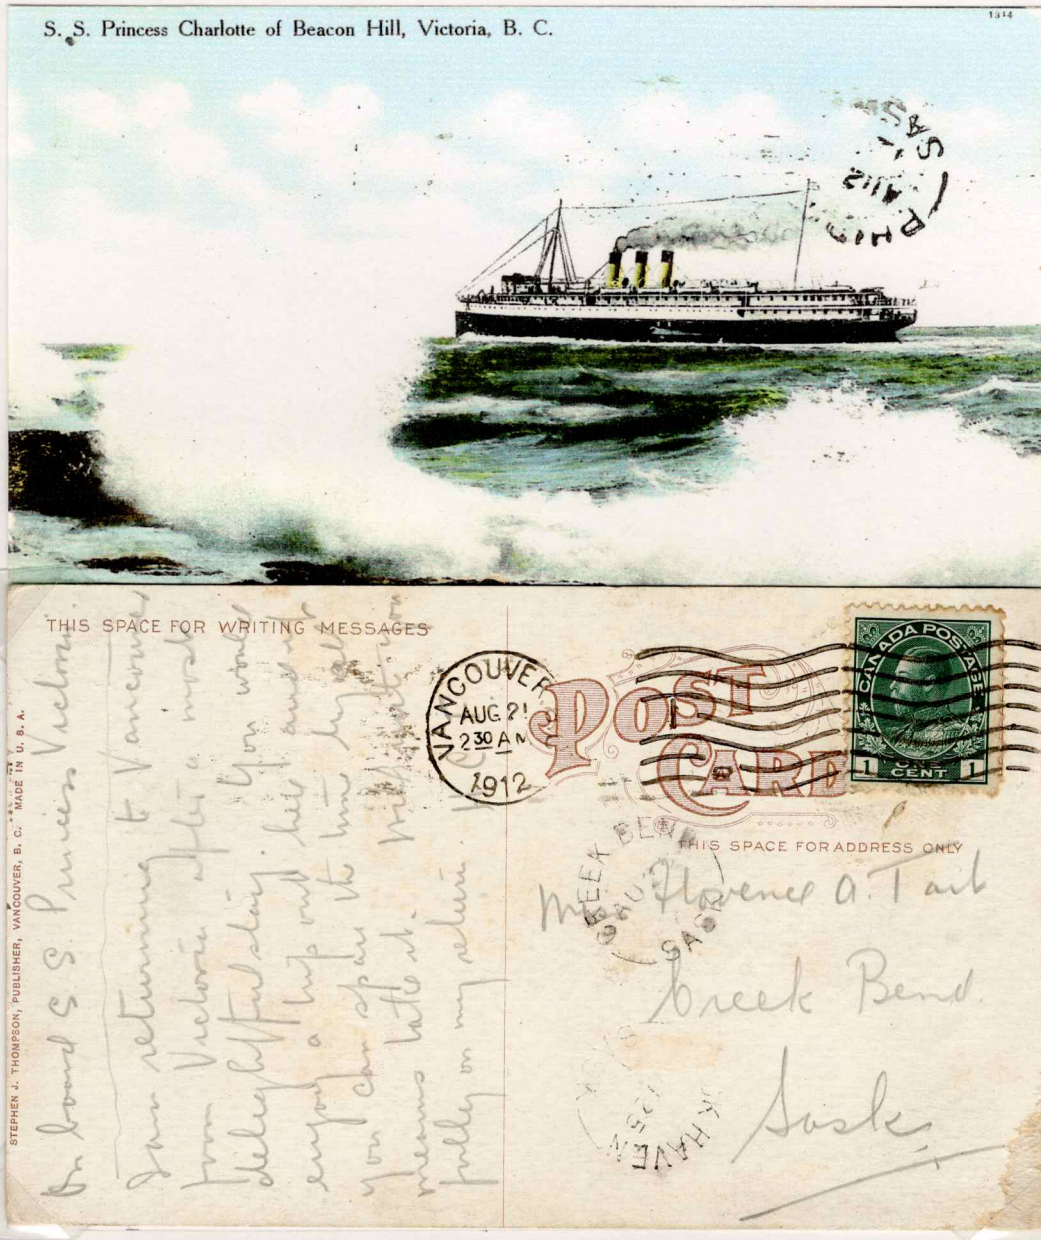 S. S. Princess Charlotte of Beacon Hill, Victoria, B. C.
1314
THIS SPACE FOR WRITING MESSAGES
STEPHEN J. THOMPSON, PUBLISHER, VANCOUVER, B. C. MADE IN U. S. A.
On board S. S. Princess Victoria
I am returning to Vancouver
from Victoria after a most
delightful stay. You would
enjoy a trip out here and if
you can spare the time by all
means take it. Will write you
fully on my return
VANCOUVER
AUG 21
2 30 AM
1912
POST
CARD
CANADA POSTAGE
1 ONE CENT 1
THIS SPACE FOR ADDRESS ONLY
CREEK BEND
AU
SASK
Miss Florence A. Tait
Creek Bend
Sask
K HAVEN